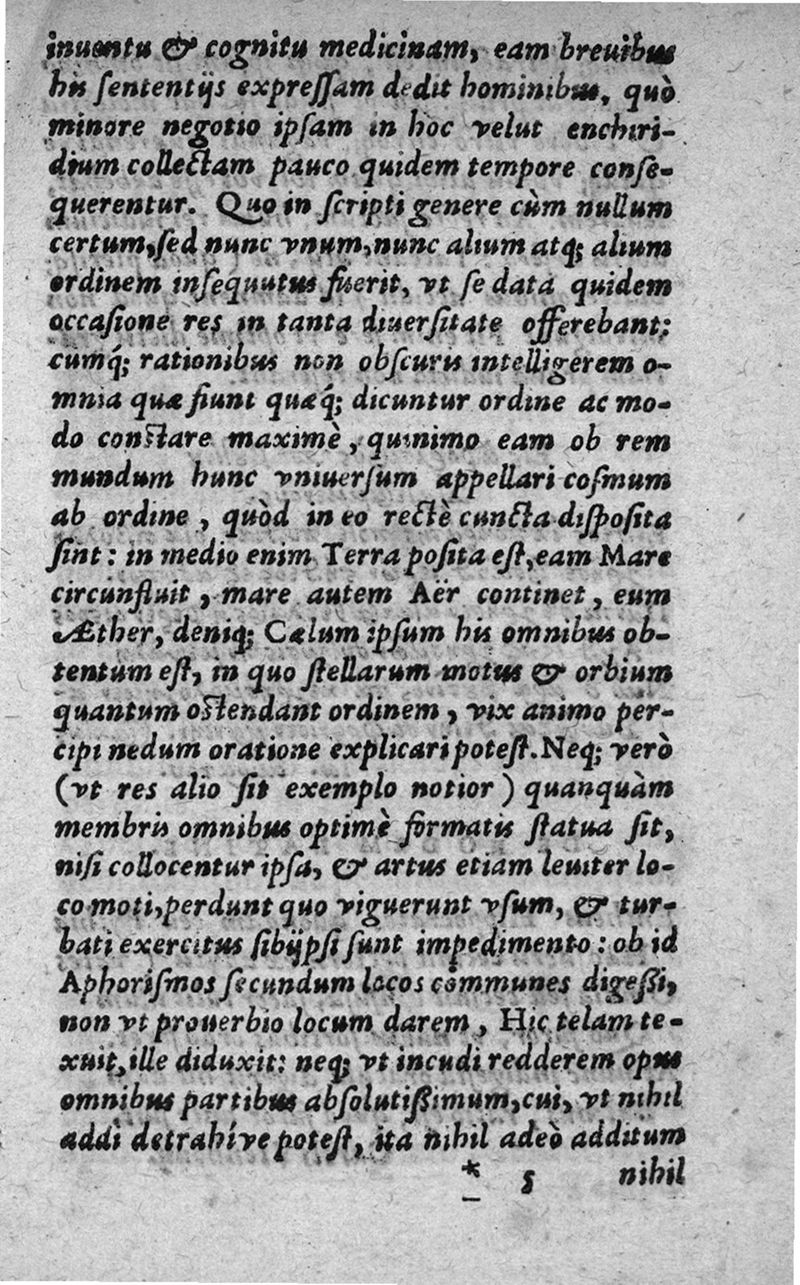 inuentu & cognitu medicinam, eam breuibus
his ſententijs expreſſam dedit hominibus, quò
minore negotio ipſam in hoc velut enchiri-
dium collectam pauco quidem tempore conſe-
querentur. Quo in ſcripti genere cùm nullum
certum, ſed nunc vnum, nunc alium atq; alium
ordinem inſequutus fuerit, vt ſe data quidem
occaſione res in tanta diuerſitate offerebant:
cumq́; rationibus non obſcuris intelligerem o-
mnia quæ fiunt quæq́; dicuntur ordine ac mo-
do conſtare maximè, quinimo eam ob rem
mundum hunc vniuerſum appellari coſmum
ab ordine, quòd in eo rectè cuncta diſpoſita
ſint: in medio enim Terra poſita eſt, eam Mare
circunfluit, mare autem Aër continet, eum
Æther, deniq; Cælum ipſum his omnibus ob-
tentum eſt, in quo ſtellarum motus & orbium
quantum oſtendant ordinem, vix animo per-
cipi nedum oratione explicari poteſt. Neq; verò
(vt res alio ſit exemplo notior) quanquàm
membris omnibus optimè formatis ſtatua ſit,
niſi collocentur ipſa, & artus etiam leuiter lo-
co moti, perdunt quo viguerunt vſum, & tur-
bati exercitus ſibijpſi ſunt impedimento: ob id
Aphoriſmos ſecundum locos communes digeßi,
non vt prouerbio locum darem, Hic telam te-
xuit, ille diduxit: neq; vt incudi redderem opus
omnibus partibus abſolutißimum, cui, vt nihil
addi detrahíve poteſt, ita nihil adeò additum
* 5 nihil